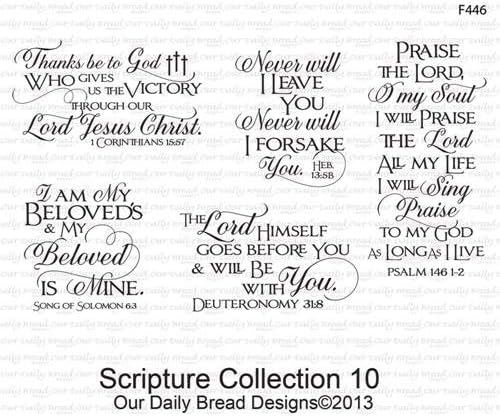 F446
Thanks be to God
WHO GIVES
US THE VICTORY
THROUGH OUR
Lord Jesus Christ.
1 CORINTHIANS 15:57
Never will
I LEAVE
YOU
Never will
I FORSAKE
You. HEB.
13:5B
PRAISE
THE LORD,
O my Soul
I WILL PRAISE
THE Lord
ALL MY LIFE
I WILL Sing
Praise
TO MY GOD
AS LONG AS I LIVE
PSALM 146 1-2
I AM MY
BELOVED'S
& MY
Beloved
IS MINE.
SONG OF SOLOMON 6:3
THE Lord HIMSELF
GOES BEFORE YOU
& WILL BE
WITH You.
DEUTERONOMY 31:8
Scripture Collection 10
Our Daily Bread Designs©2013